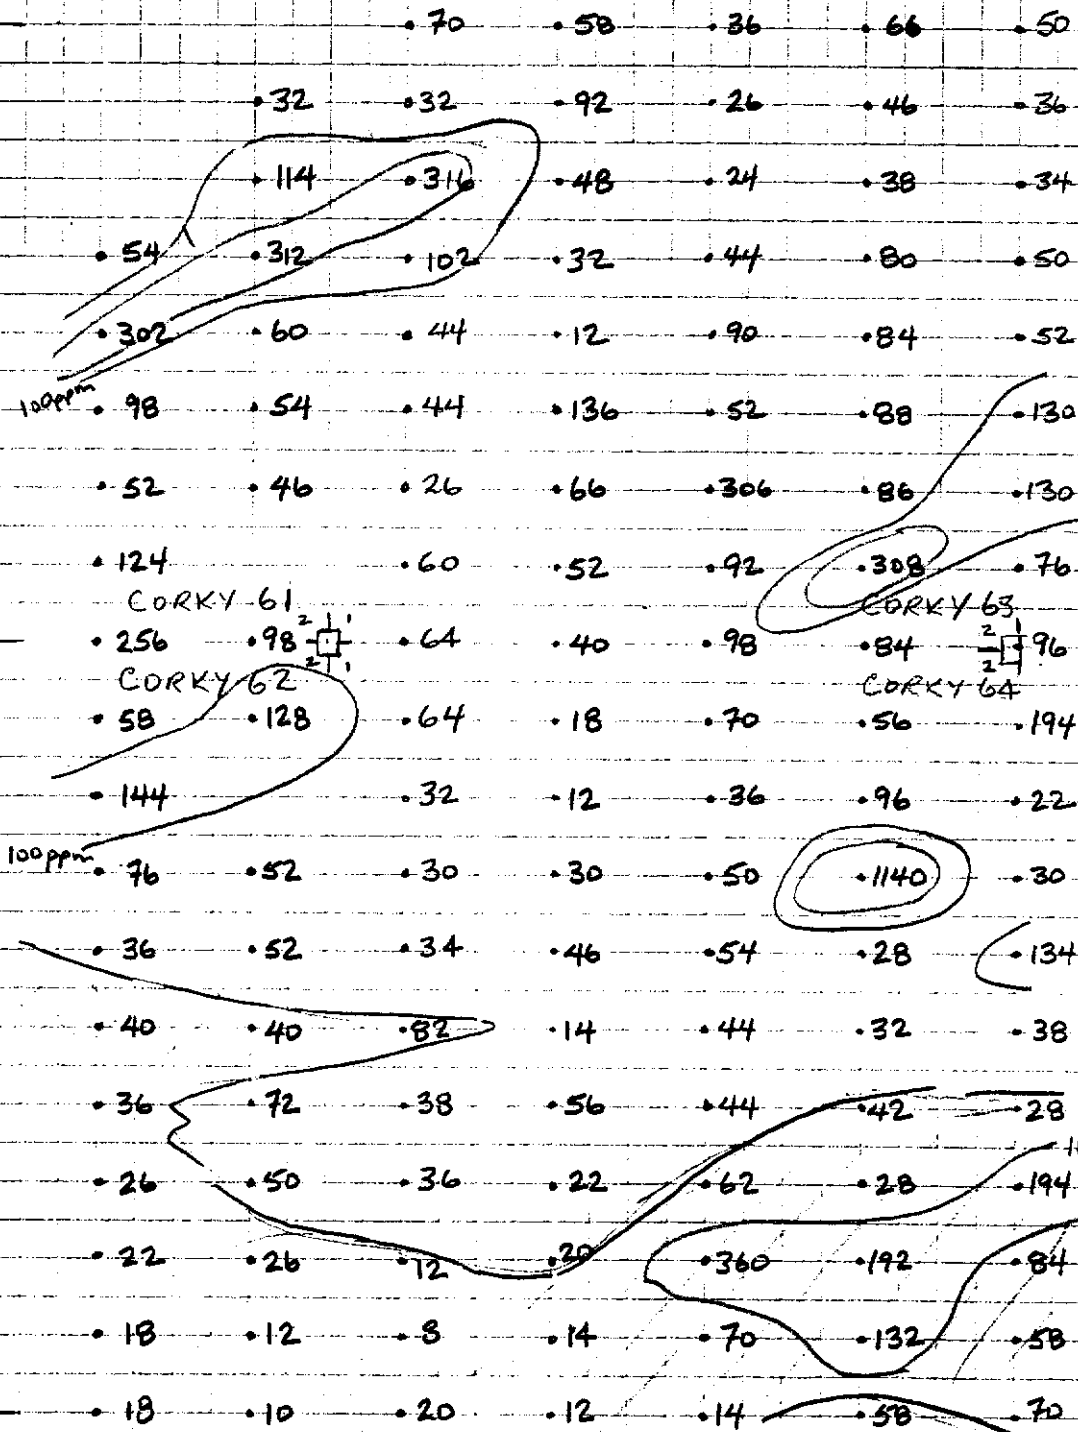 70 58 36 66 50
32 32 92 26 46 36
114 316 48 24 38 34
54 312 102 32 44 80 50
302 60 44 12 90 84 52
100ppm 98 54 44 136 52 88 130
52 46 26 66 306 86 130
124 60 52 92 308 76
CORKY 61 CORKY 63
2 1 2 1
256 98 64 40 98 84 96
2 1 2
CORKY 62 CORKY 64
58 128 64 18 70 56 194
144 32 12 36 96 22
100ppm 76 52 30 30 50 1140 30
36 52 34 46 54 28 134
40 40 82 14 44 32 38
36 72 38 56 44 42 28
26 50 36 22 62 28 194
22 26 12 20 360 192 84
18 12 8 14 70 132 58
18 10 20 12 14 58 70